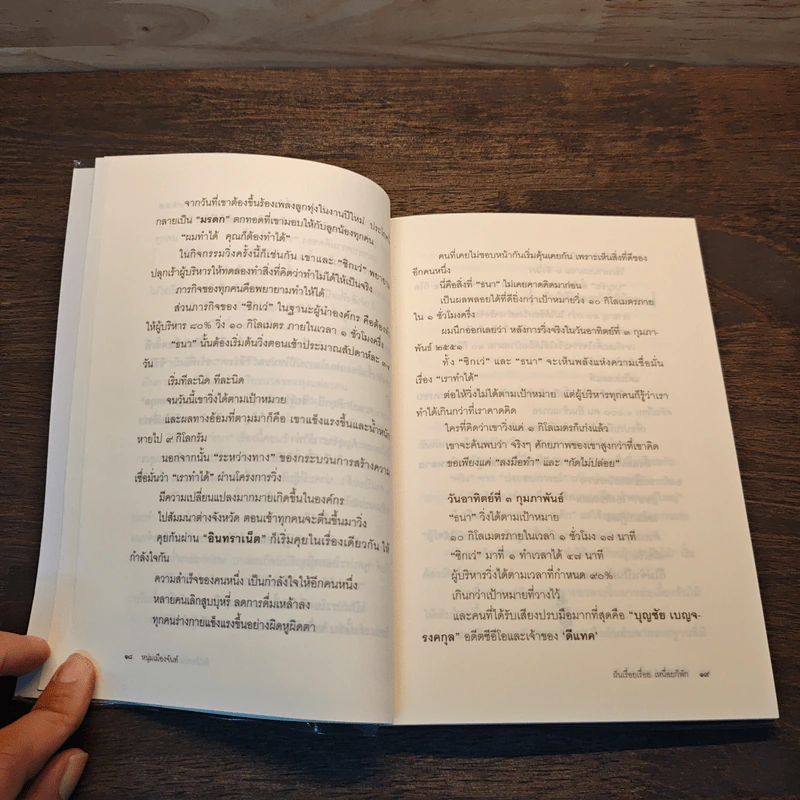 จากวันที่เขาต้องขึ้นร้องเพลงลูกทุ่งในงานปีใหม่
กลายเป็น “มรดก” ตกทอดที่เขามอบให้กับลูกน้องทุกคน
“ผมทำได้ คุณก็ต้องทำได้”
ในกิจกรรมวิ่งครั้งนี้ก็เช่นกัน เขาและ “ซิกเว่” พยายาม
ปลุกเร้าผู้บริหารให้ทดลองทำสิ่งที่คิดว่าทำไม่ได้ให้เป็นจริง
ภารกิจของทุกคนคือพยายามทำให้ได้
ส่วนภารกิจของ “ซิกเว่” ในฐานะผู้นำองค์กร คือต้อง
ให้ผู้บริหาร ๘๐% วิ่ง ๑๐ กิโลเมตร ภายในเวลา ๑ ชั่วโมงครึ่ง
“ธนา” นั้นต้องเริ่มต้นวิ่งตอนเช้าประมาณสัปดาห์ละ
วัน
เริ่มทีละนิด ทีละนิด
จนวันนี้เขาวิ่งได้ตามเป้าหมาย
และผลทางอ้อมที่ตามมาก็คือ เขาแข็งแรงขึ้นและน้ำหนัก
หายไป ๙ กิโลกรัม
นอกจากนั้น “ระหว่างทาง” ของกระบวนการสร้างความ
เชื่อมั่นว่า “เราทำได้” ผ่านโครงการวิ่ง
มีความเปลี่ยนแปลงมากมายเกิดขึ้นในองค์กร
ไปสัมมนาต่างจังหวัด ตอนเช้าทุกคนจะตื่นขึ้นมาวิ่ง
คุยกันผ่าน “อินทราเน็ต” ก็เริ่มคุยในเรื่องเดียวกัน ให้
กำลังใจกัน
ความสำเร็จของคนหนึ่ง เป็นกำลังใจให้อีกคนหนึ่ง
หลายคนเลิกสูบบุหรี่ ลดการดื่มเหล้าลง
ทุกคนร่างกายแข็งแรงขึ้นอย่างผิดหูผิดตา
๑๘ หนุ่มเมืองจันท์
คนที่เคยไม่ชอบหน้ากันเริ่มคุ้นเคยกัน เพราะเห็นสิ่งที่ดีของ
อีกคนหนึ่ง
นี่คือสิ่งที่ “ธนา” ไม่เคยคาดคิดมาก่อน
เป็นผลพลอยได้ที่ดียิ่งกว่าเป้าหมายวิ่ง ๑๐ กิโลเมตรภาย
ใน ๑ ชั่วโมงครึ่ง
ผมนึกออกเลยว่า หลังการวิ่งจริงในวันอาทิตย์ที่ ๓ กุมภา-
พันธ์ ๒๕๕๑
ทั้ง “ซิกเว่” และ “ธนา” จะเห็นพลังแห่งความเชื่อมั่น
เรื่อง “เราทำได้”
ต่อให้วิ่งไม่ได้ตามเป้าหมาย แต่ผู้บริหารทุกคนก็รู้ว่าเรา
ทำได้เกินกว่าที่เราคาดคิด
ใครที่คิดว่าเขาวิ่งแค่ ๑ กิโลเมตรก็เก่งแล้ว
เขาจะค้นพบว่า จริงๆ ศักยภาพของเขาสูงกว่าที่เขาคิด
ขอเพียงแค่ “ลงมือทำ” และ “กัดไม่ปล่อย”
วันอาทิตย์ที่ ๓ กุมภาพันธ์
“ธนา” วิ่งได้ตามเป้าหมาย
๑๐ กิโลเมตรภายในเวลา ๑ ชั่วโมง ๑๘ นาที
“ซิกเว่” มาที่ ๑ ทำเวลาได้ ๔๗ นาที
ผู้บริหารวิ่งได้ตามเวลาที่กำหนด ๙๐%
เกินกว่าเป้าหมายที่วางไว้
และคนที่ได้รับเสียงปรบมือมากที่สุดคือ “บุญชัย เบญจ-
รงคกุล” อดีตซีอีโอและเจ้าของ ‘ดีแทค’
ฝันเรื่อยเรื่อย เหนื่อยก็พัก ๑๙